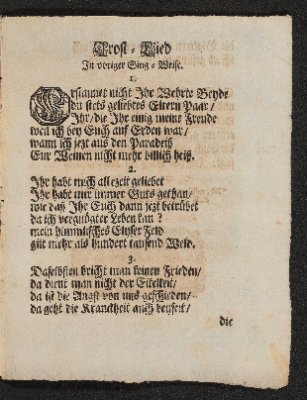 Trost-Lied
In voriger Sing-Weise.
1.
Erstaunet nicht Ihr Wehrte Beyde
du stets geliebtes Eltern Paar/
Ihr/ die Ihr einig meine Freude
weil ich bey Euch auf Erden war/
wann ich jezt aus den Paradeiß
Eur Weinen nicht mehr billich heiß.
2.
Ihr habt mich allezeit geliebet
Ihr habt mir immer Guts gethan/
wie daß Ihr Euch dann jezt betrübet
da ich vergnügter Leben kan?
mein himmlisches Elyser Feld
gilt mehr als hundert tausend Welt.
3.
Daselbsten bricht man keinen Frieden/
da dient man nicht der Eitelkeit/
da ist die Angst von uns geschieden/
da geht die Kranckheit auch beyseit/
die